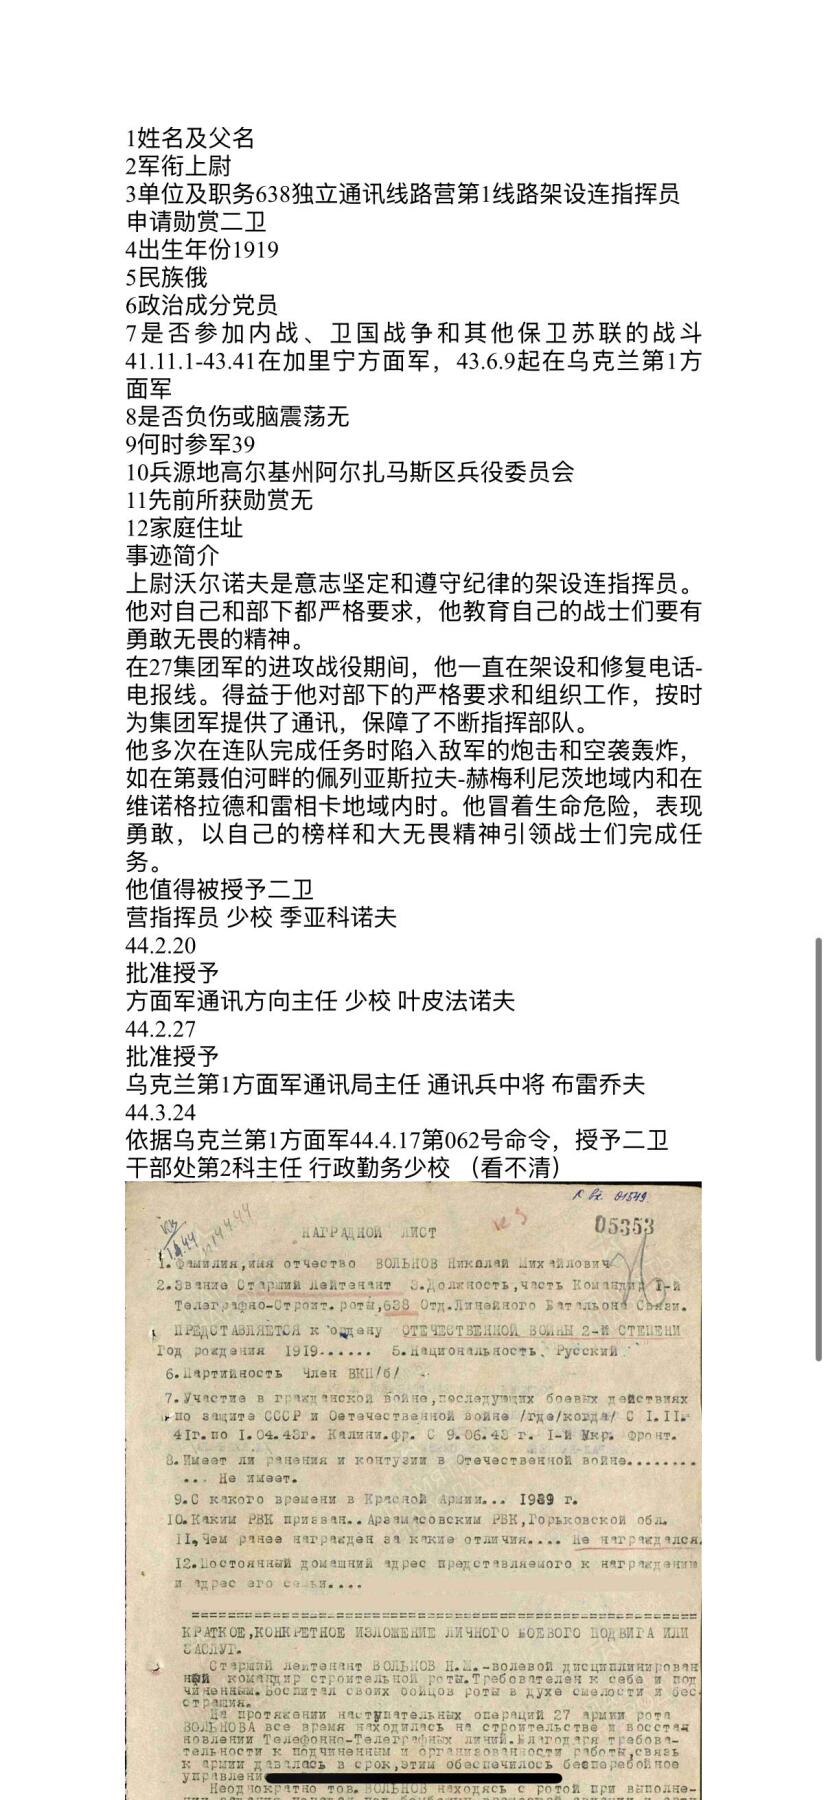 1姓名及父名
2军衔上尉
3单位及职务638独立通讯线路营第1线路架设连指挥员
申请勋赏二卫
4出生年份1919
5民族俄
6政治成分党员
7是否参加内战、卫国战争和其他保卫苏联的战斗
41.11.1-43.41在加里宁方面军，43.6.9起在乌克兰第1方
面军
8是否负伤或脑震荡无
9何时参军39
10兵源地高尔基州阿尔扎马斯区兵役委员会
11先前所获勋赏无
12家庭住址
事迹简介
上尉沃尔诺夫是意志坚定和遵守纪律的架设连指挥员。
他对自己和部下都严格要求，他教育自己的战士们要有
勇敢无畏的精神。
在27集团军的进攻战役期间，他一直在架设和修复电话-
电报线。得益于他对部下的严格要求和组织工作，按时
为集团军提供了通讯，保障了不断指挥部队。
他多次在连队完成任务时陷入敌军的炮击和空袭轰炸，
如在第聂伯河畔的佩列亚斯拉夫-赫梅利尼茨地域内和在
维诺格拉德和雷相卡地域内时。他冒着生命危险，表现
勇敢，以自己的榜样和大无畏精神引领战士们完成任
务。
他值得被授予二卫
营指挥员 少校 季亚科诺夫
44.2.20
批准授予
方面军通讯方向主任 少校 叶皮法诺夫
44.2.27
批准授予
乌克兰第1方面军通讯局主任 通讯兵中将 布雷乔夫
44.3.24
依据乌克兰第1方面军44.4.17第062号命令，授予二卫
干部处第2科主任 行政勤务少校 （看不清）
05353
НАГРАДНОЙ ЛИСТ
1.Фамилия,имя отчество ВОЛЬНОВ Николай Михайлович
2.Звание Старший Лейтенант 3.Должность,часть Командир I-й
Телеграфно-Строит.роты,638 Отд.Линейного Батальона Связи.
ПРЕДСТАВЛЯЕТСЯ к ордену ОТЕЧЕСТВЕННОЙ ВОЙНЫ 2-Й СТЕПЕНИ
Год рождения 1919...... 5.Национальность Русский
6.Партийность Член ВКП/б/
7.Участие в гражданской войне,последующих боевых действиях
по защите СССР и Оетечественной войне /где/когда/ С I.II.
41г.по I.04.43г. Калини.фр. С 9.06.43 г. I-й Укр. Фронт.
8.Имеет ли ранения и контузии в Отечественной войне........
... Не имеет.
9.С какого времени в Красной Армии... 1939 г.
10.Каким РВК призван..Арзамасовским РВК,Горьковской обл.
II.Чем ранее награжден за какие отличия.... Не награждался
12.Постоянный домашний адрес представляемого к награждению
и адрес его семьи....
КРАТКОЕ,КОНКРЕТНОЕ ИЗЛОЖЕНИЕ ЛИЧНОГО БОЕВОГО ПОДВИГА ИЛИ
ЗАСЛУГ.
Старший лейтенант ВОЛЬНОВ Н.М.-волевой дисциплинирован
ный командир строительной роты.Требователен к себе и под
чиненным.Воспитал своих бойцов роты в духе смелости и бес-
страшия.
На протяжении наступательных операций 27 армии рота
ВОЛЬНОВА все время находилась на строительстве и восста
новлении Телефонно-Телеграфных линий.Благодаря требова-
тельности к подчиненным и организованности работы,связь
к армии давалась в срок,этим обеспечилось бесперебойное
управлени
Неоднократно тов.ВОЛЬНОВ находясь с ротой при выполне-